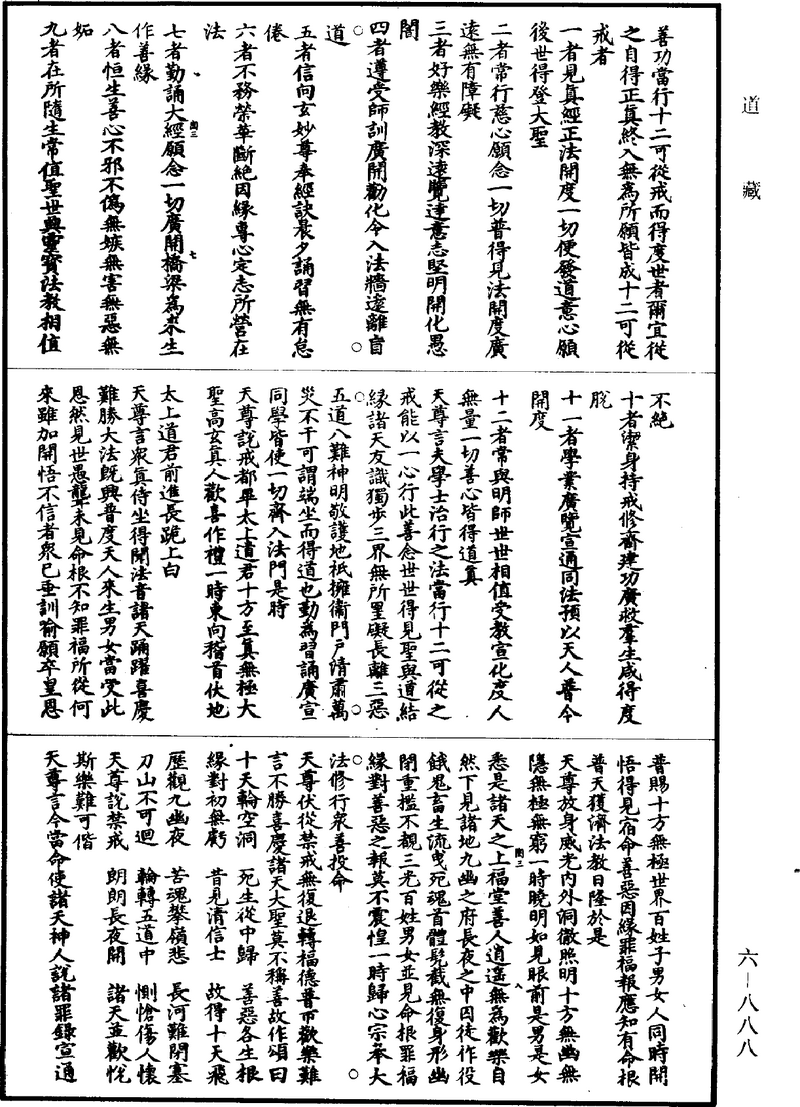 道藏
善功當行十二可從戒而得度世者爾宜從
之自得正真終入無為所願皆成十二可從
戒者
一者見真經正法開度一切便發道意心願
後世得登大聖
二者常行慈心願念一切普得見法開度廣
遠無有障礙
三者好樂經教深遠覽達意志堅明開化愚
闇
四者遵受師訓廣開勸化令入法牆遠離盲
道
五者信向玄妙尊奉經訣晨夕誦習無有怠
倦
六者不務榮華斷絕因緣專心定志所營在
法
七者勤誦大經願念一切廣開橋梁為來生
作善緣
八者恒生善心不邪不偽無嫉無害無惡無
妬
九者在所隨生常值聖世與靈寶法教相值
不絕
十者潔身持戒修齋建功廣救羣生咸得度
脫
十一者學業廣覽宣通同法預以天人普令
開度
十二者常與明師世世相值受教宣化度人
無量一切善心皆得道真
天尊言夫學士治行之法當行十二可從之
戒能以一心行此善念世世得見聖與道結
緣諸天友識獨步三界無所罣礙長離三惡
五道八難神明敬護地祇擁衛門戶清肅萬
災不干可謂端坐而得道也勤為習誦廣宣
同學皆使一切齊入法門是時
天尊說戒都畢太上道君十方至真無極大
聖高玄真人歡喜作禮一時東向稽首伏地
太上道君前進長跪上白
天尊言衆真侍坐得聞法音諸天踊躍喜慶
難勝大法既興普度天人來生男女當受此
恩然見世愚聾未見命根不知罪福所從何
來雖加開悟不信者衆已垂訓喻願卒皇恩
普賜十方無極世界百姓子男女人同時開
悟得見宿命善惡因緣罪福報應知有命根
普天獲濟法教日隆於是
天尊放身威光內外洞徹照明十方無幽無
隱無極無窮一時曉明如見眼前是男是女
悉是諸天之上福堂善人逍遙無為歡樂自
然下見諸地九幽之府長夜之中囚徒作役
餓鬼畜生流曳死魂首體髡截無復身形幽
閉重檻不覩三光百姓男女並見命根罪福
緣對善惡之報莫不震惶一時歸心宗奉大
法修行衆善投命
天尊伏從禁戒無復退轉福德普帀歡樂難
言不勝喜慶諸天大聖莫不稱善故作頌曰
十天輪空洞 死生從中歸 善惡各生根
緣對初無虧 昔見清信士 故得十天飛
歷觀九幽夜 苦魂攀嶺悲 長河難閉塞
刀山不可迴 輪轉五道中 惻愴傷人懷
天尊說禁戒 朗朗長夜開 諸天並歡悅
斯樂難可偕
天尊言今當命使諸天神人說諸罪錄宣通
六－八八八